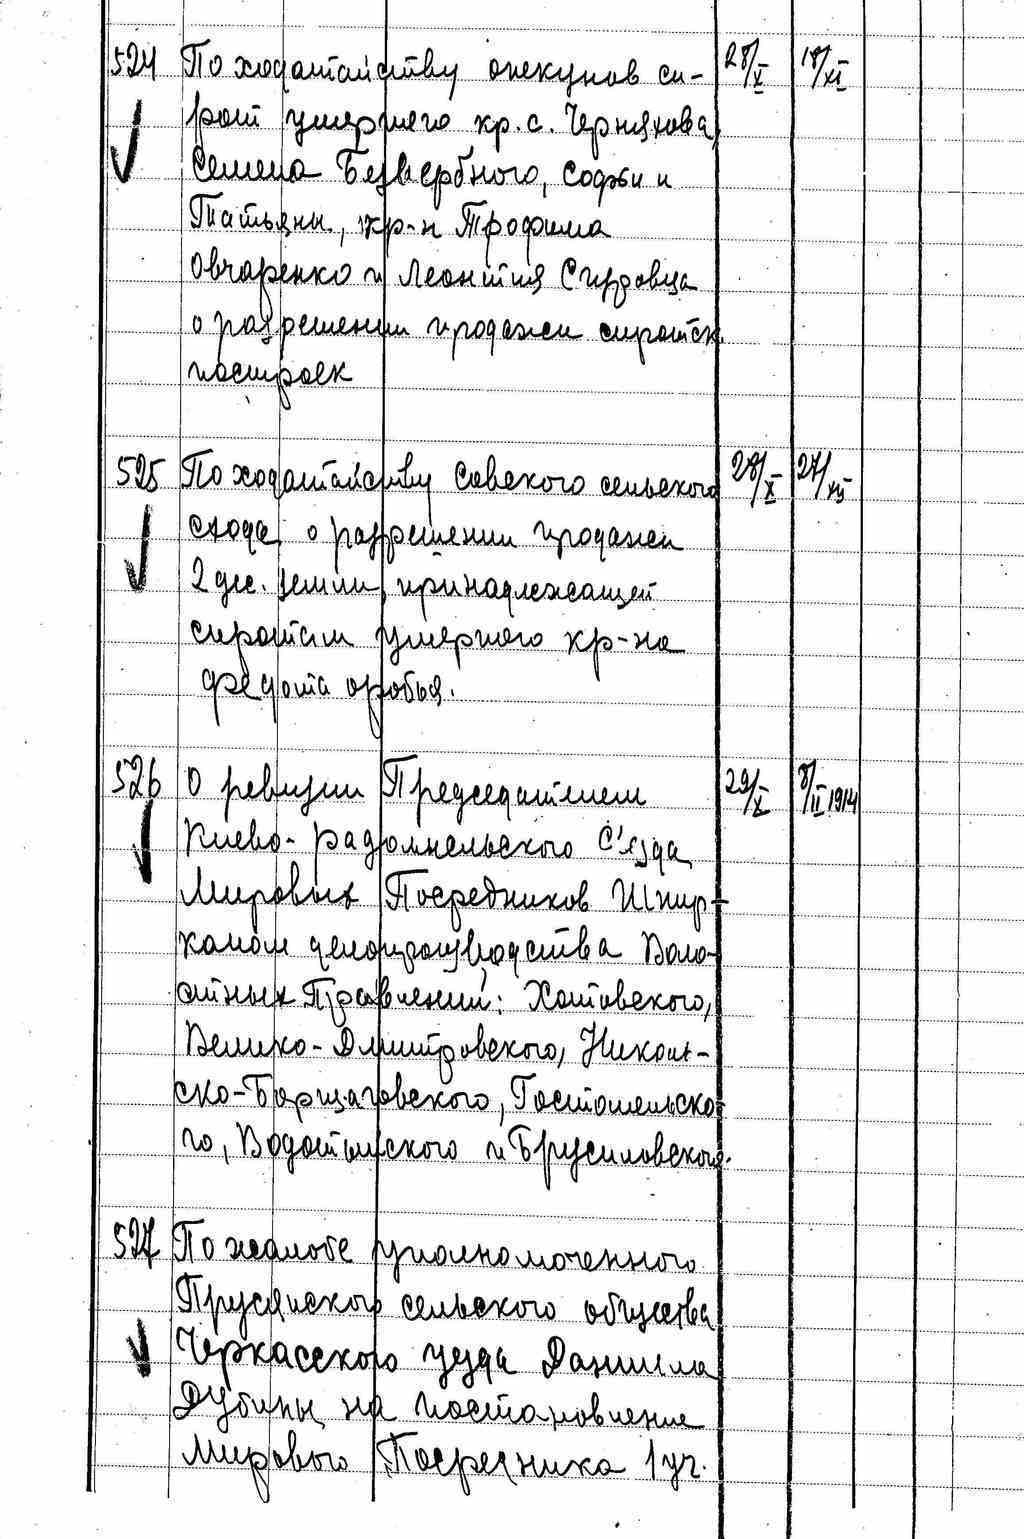 524 По ходатайству опекунов си- 28/X 18/XI
рот умершего кр. с. Черняхова,
Семена Безвербного, Софьи и
Татьяны, кр-н Трофима
Овчаренко и Леонтия
о разрешении продажи сиротск.
построек
525 По ходатайству Савского сельского 28/X 27/XII
схода о разрешении продажи
2 дес. земли, принадлежащей
сиротам умершего кр-на
Федота Оробья.
526 О ревизии Председателем 29/X 8/II 1914
Киево-Радомысльского С'езда
Мировых Посредников Шпир-
каном делопроизводства Воло-
стных Правлений: Хотовского,
Велико-Дмитровского, Николь-
ско-Борщаговского, Гостомельско-
го, и Брусиловского.
527 По жалобе уполномоченного
Прусянского сельского общества
Черкасского уезда Даниила
Дубины на постановление
Мирового Посредника 1 уч.